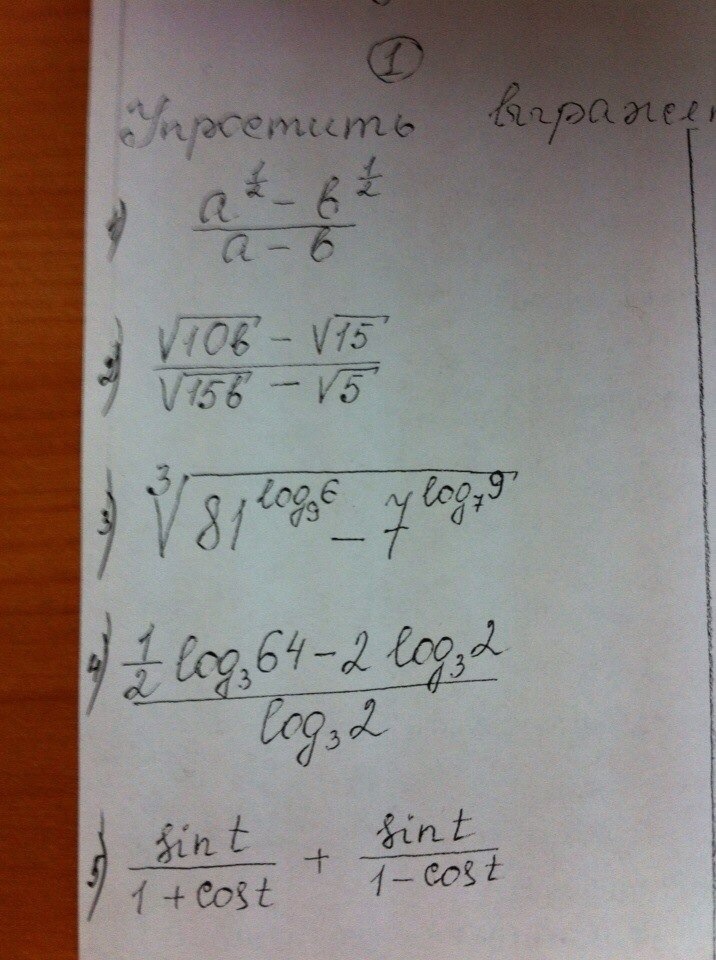 ①
Упростить выражен
1) \frac{a^{\frac{1}{2}} - b^{\frac{1}{2}}}{a - b}
2) \frac{\sqrt{10b} - \sqrt{15}}{\sqrt{15b} - \sqrt{5}}
3) \sqrt[3]{81^{\log_9 6} - 7^{\log_7 9}}
4) \frac{\frac{1}{2} \log_3 64 - 2 \log_3 2}{\log_3 2}
5) \frac{\sin t}{1 + \cos t} + \frac{\sin t}{1 - \cos t}